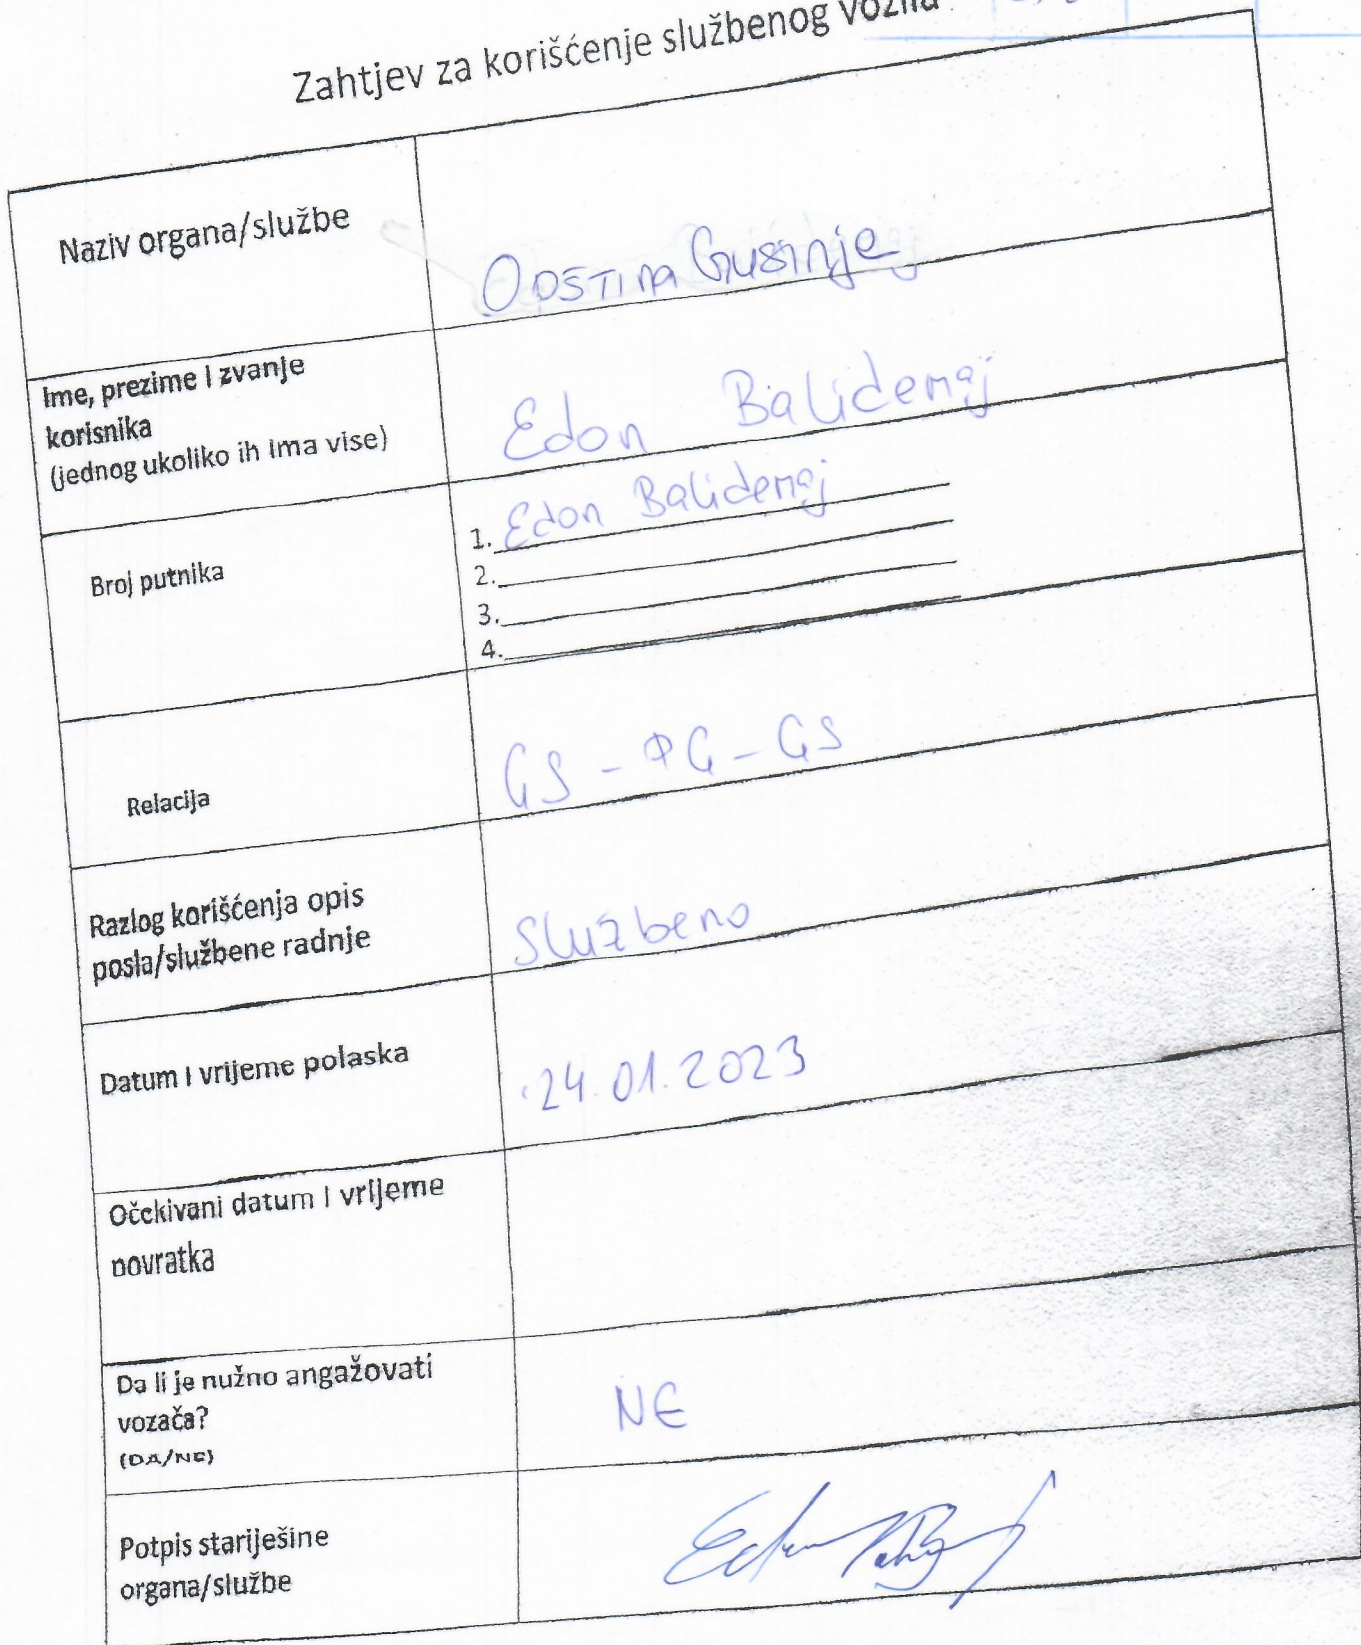 Zahtjev za korišćenje službenog vozila
Naziv organa/službe
Opština Gusinje
Ime, prezime I zvanje
korisnika
(jednog ukoliko ih ima vise)
Edon Balidemaj
Broj putnika
1. Edon Balidemaj
2.
3.
4.
Relacija
GS - PG - GS
Razlog korišćenja opis
posla/službene radnje
Službeno
Datum I vrijeme polaska
24.01.2023
Očekivani datum I vrijeme
povratka
Da li je nužno angažovati
vozača?
(DA/NE)
NE
Potpis starješine
organa/službe